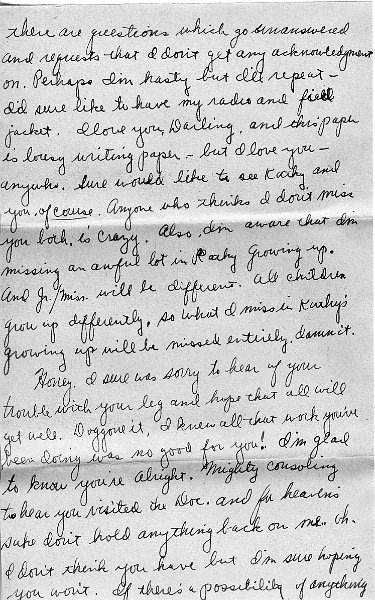 there are questions which go unanswered
and requests that I don't get any acknowledgment
on. Perhaps I'm hasty but I'll repeat -
did sure like to have my radio and field
jacket. I love you, Darling, and this paper
is lousy writing paper - but I love you -
anywho. Sure would like to see Kathy and
you, of course. Anyone who thinks I don't miss
you both, is crazy. Also, I'm aware that I'm
missing an awful lot in Kathy Growing up.
And Jr./Miss. will be different. All children
grow up differently, so what I miss in Kathy's
growing up will be missed entirely, damn it.
Honey, I sure was sorry to hear of your
trouble with your leg and hope that all will
get well. Doggone it, I knew all that work you've
been doing was no good for you! I'm glad
to know you're alright. Mighty consoling
to hear you visited the Doc. and for heaven's
sake don't hold anything back on me. Oh.
I don't think you have but I'm sure hoping
you won't. If there's a possibility of anything